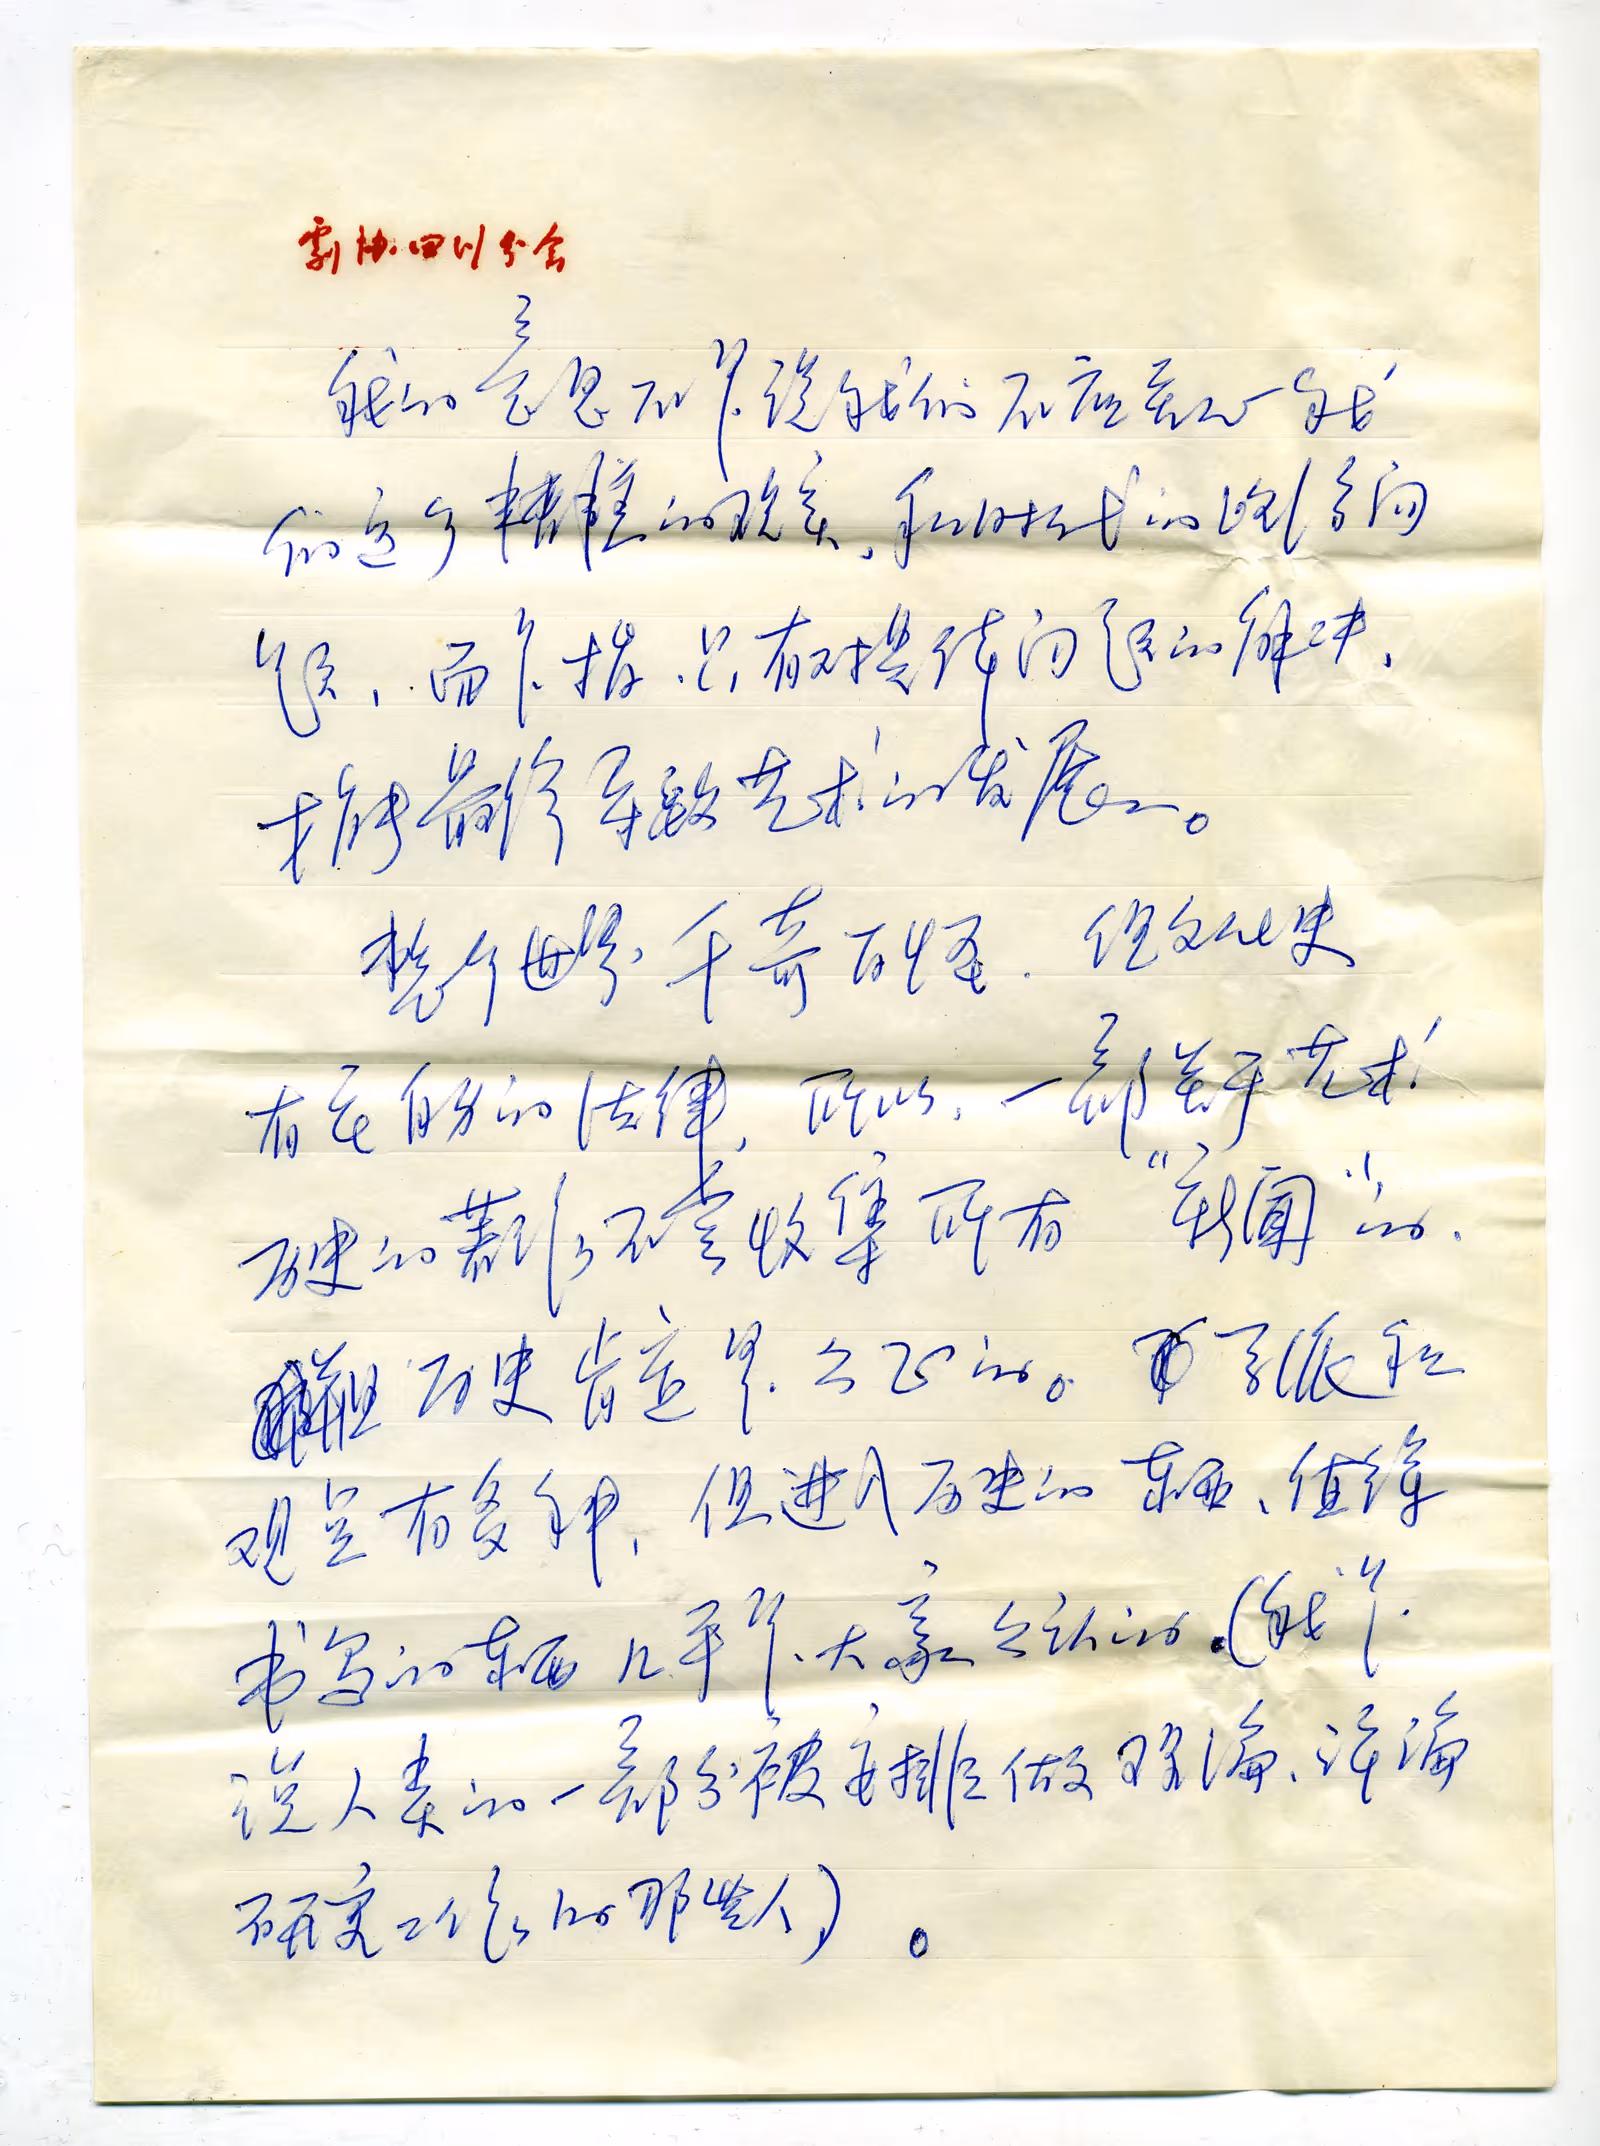 剧协四川分会
我的意思不是说我们不应关心我
们这个糟糕的现实,和时代的哲学问
题,而是指只有对具体问题的解决,
才能最终导致艺术的发展。
整个世界千奇百怪.但文化史
有它自身的法律,所以,一部关于艺术
历史的著作不会收集所有“新闻”的.
但历史肯定是公正的。学派和
观点有多种,但进入历史的东西、值得
书写的东西几乎是大家公认的.(我是
说人类的一部分被安排做理论、评论
研究工作的那些人)。